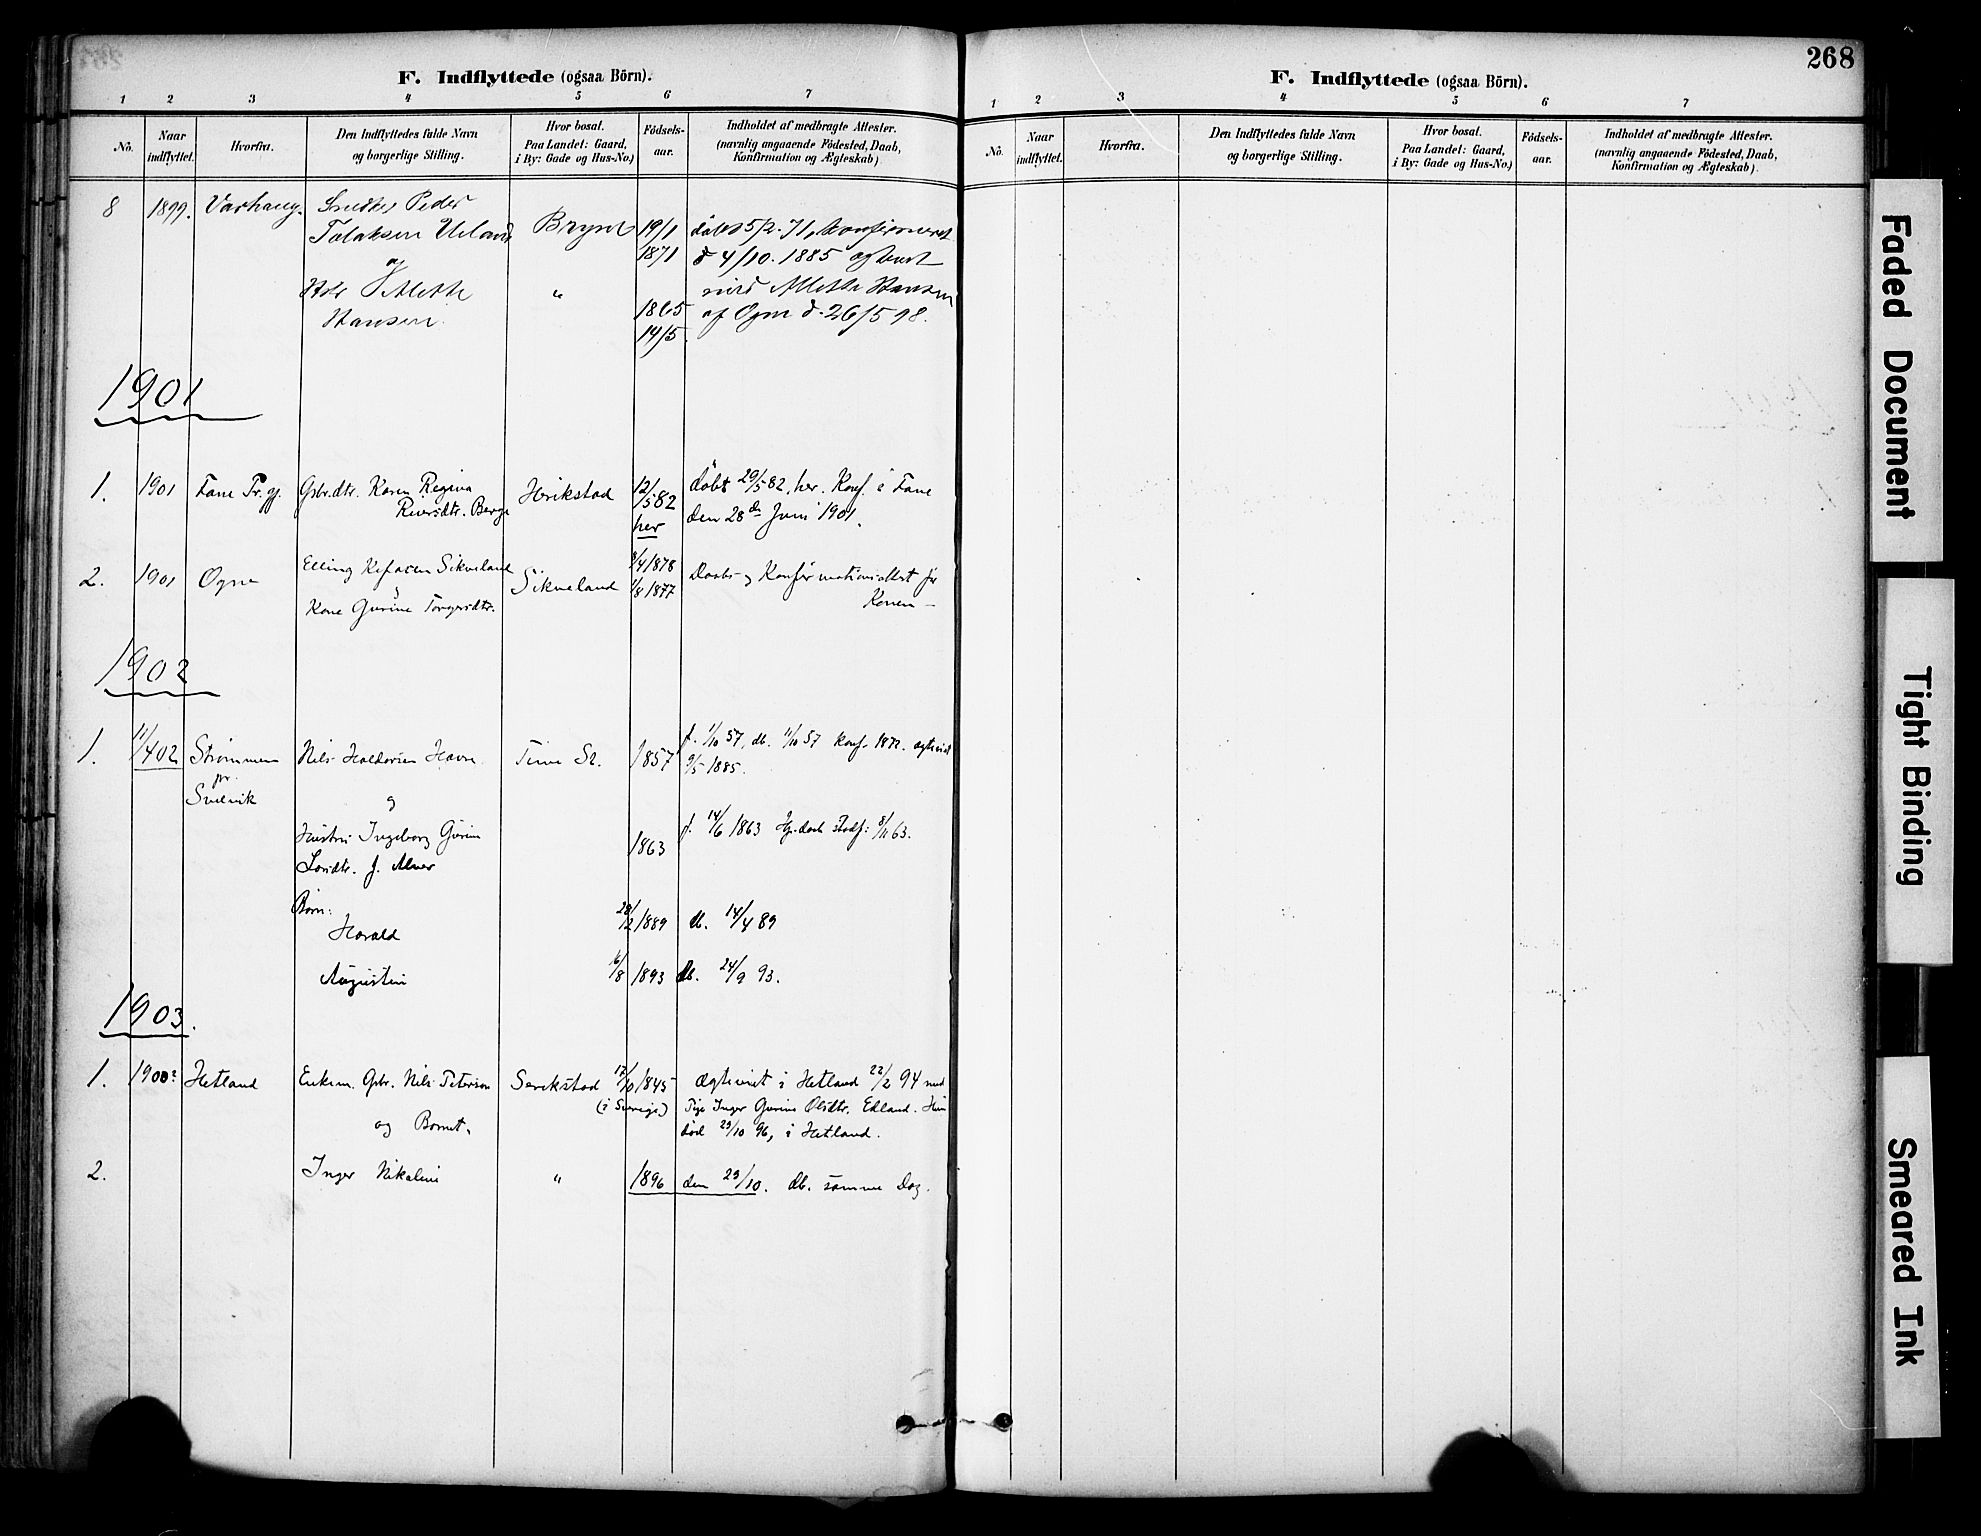 268
F. Indflyttede (ogsaa Börn).
1 2 3 4 5 6 7
No.
Naar indflyttet.
Hvorfra.
Den Indflyttedes fulde Navn
og borgerlige Stilling.
Hvor bosat.
Paa Landet: Gaard,
i By: Gade og Hus-No.)
Födsels-
aar.
Indholdet af medbragte Attester.
(navnlig angaaende Födested, Daab,
Konfirmation og Ægteskab)
8 1899. Varhaug. Peder
Tolaksen Ueland Bryne 19/1 döbt 5/2. 71, konfirmeret
1871 d 4/10. 1885 og
og
Mette " med Mette Hansen
Hansen. 1865 af Ogne d. 26/5 98.
14/5.
1901
1. 1901 Fane Pr.gj. Gbr.dtr. Karen Regina Herikstad 12/5 82 döbt 29/5 82, her. Konf. i Fane
Berge her den 28de Juni 1901.
2. 1901 Ogne Elling Sikveland Sikveland 8/4 1878 Daabs- og Konfirmationsattest for
og 1/8 1877 Konen -
Kone Gurine Torgersdtr.
1902
1. 11/4 02 Strömmen Nils Haldorsen Havn Time St. 1857 f. 1/10 57, db. 11/10 57 konf. 1872. ægteviet
pr. 9/5 1885.
Svelvik
og
Hustru Ingeborg Gurine 1863 f. 14/6 1863 Hj.döbt Stadf: 8/11 63.
f.
Börn:
Harald 28/2 1889 db. 14/4 89
Augustin 6/8 1893 db. 24/9 93.
1903.
1. 1900? Hetland Enkem. Gbr. Nils Peterson Serikstad 17/10 1845 Ægteviet i Hetland 22/2 94 med
(i Sverige) Pige Inger Gurine Olsdtr. Edland. Hun
og Barnet. död 29/10 96, i Hetland.
2. Inger Nikoline " 1896 den 29/10. db. samme Dag.
F. Indflyttede (ogsaa Börn).
1 2 3 4 5 6 7
No.
Naar indflyttet.
Hvorfra.
Den Indflyttedes fulde Navn
og borgerlige Stilling.
Hvor bosat.
Paa Landet: Gaard,
i By: Gade og Hus-No.)
Födsels-
aar.
Indholdet af medbragte Attester.
(navnlig angaaende Födested, Daab,
Konfirmation og Ægteskab).
Faded Document
Tight Binding
Smeared Ink